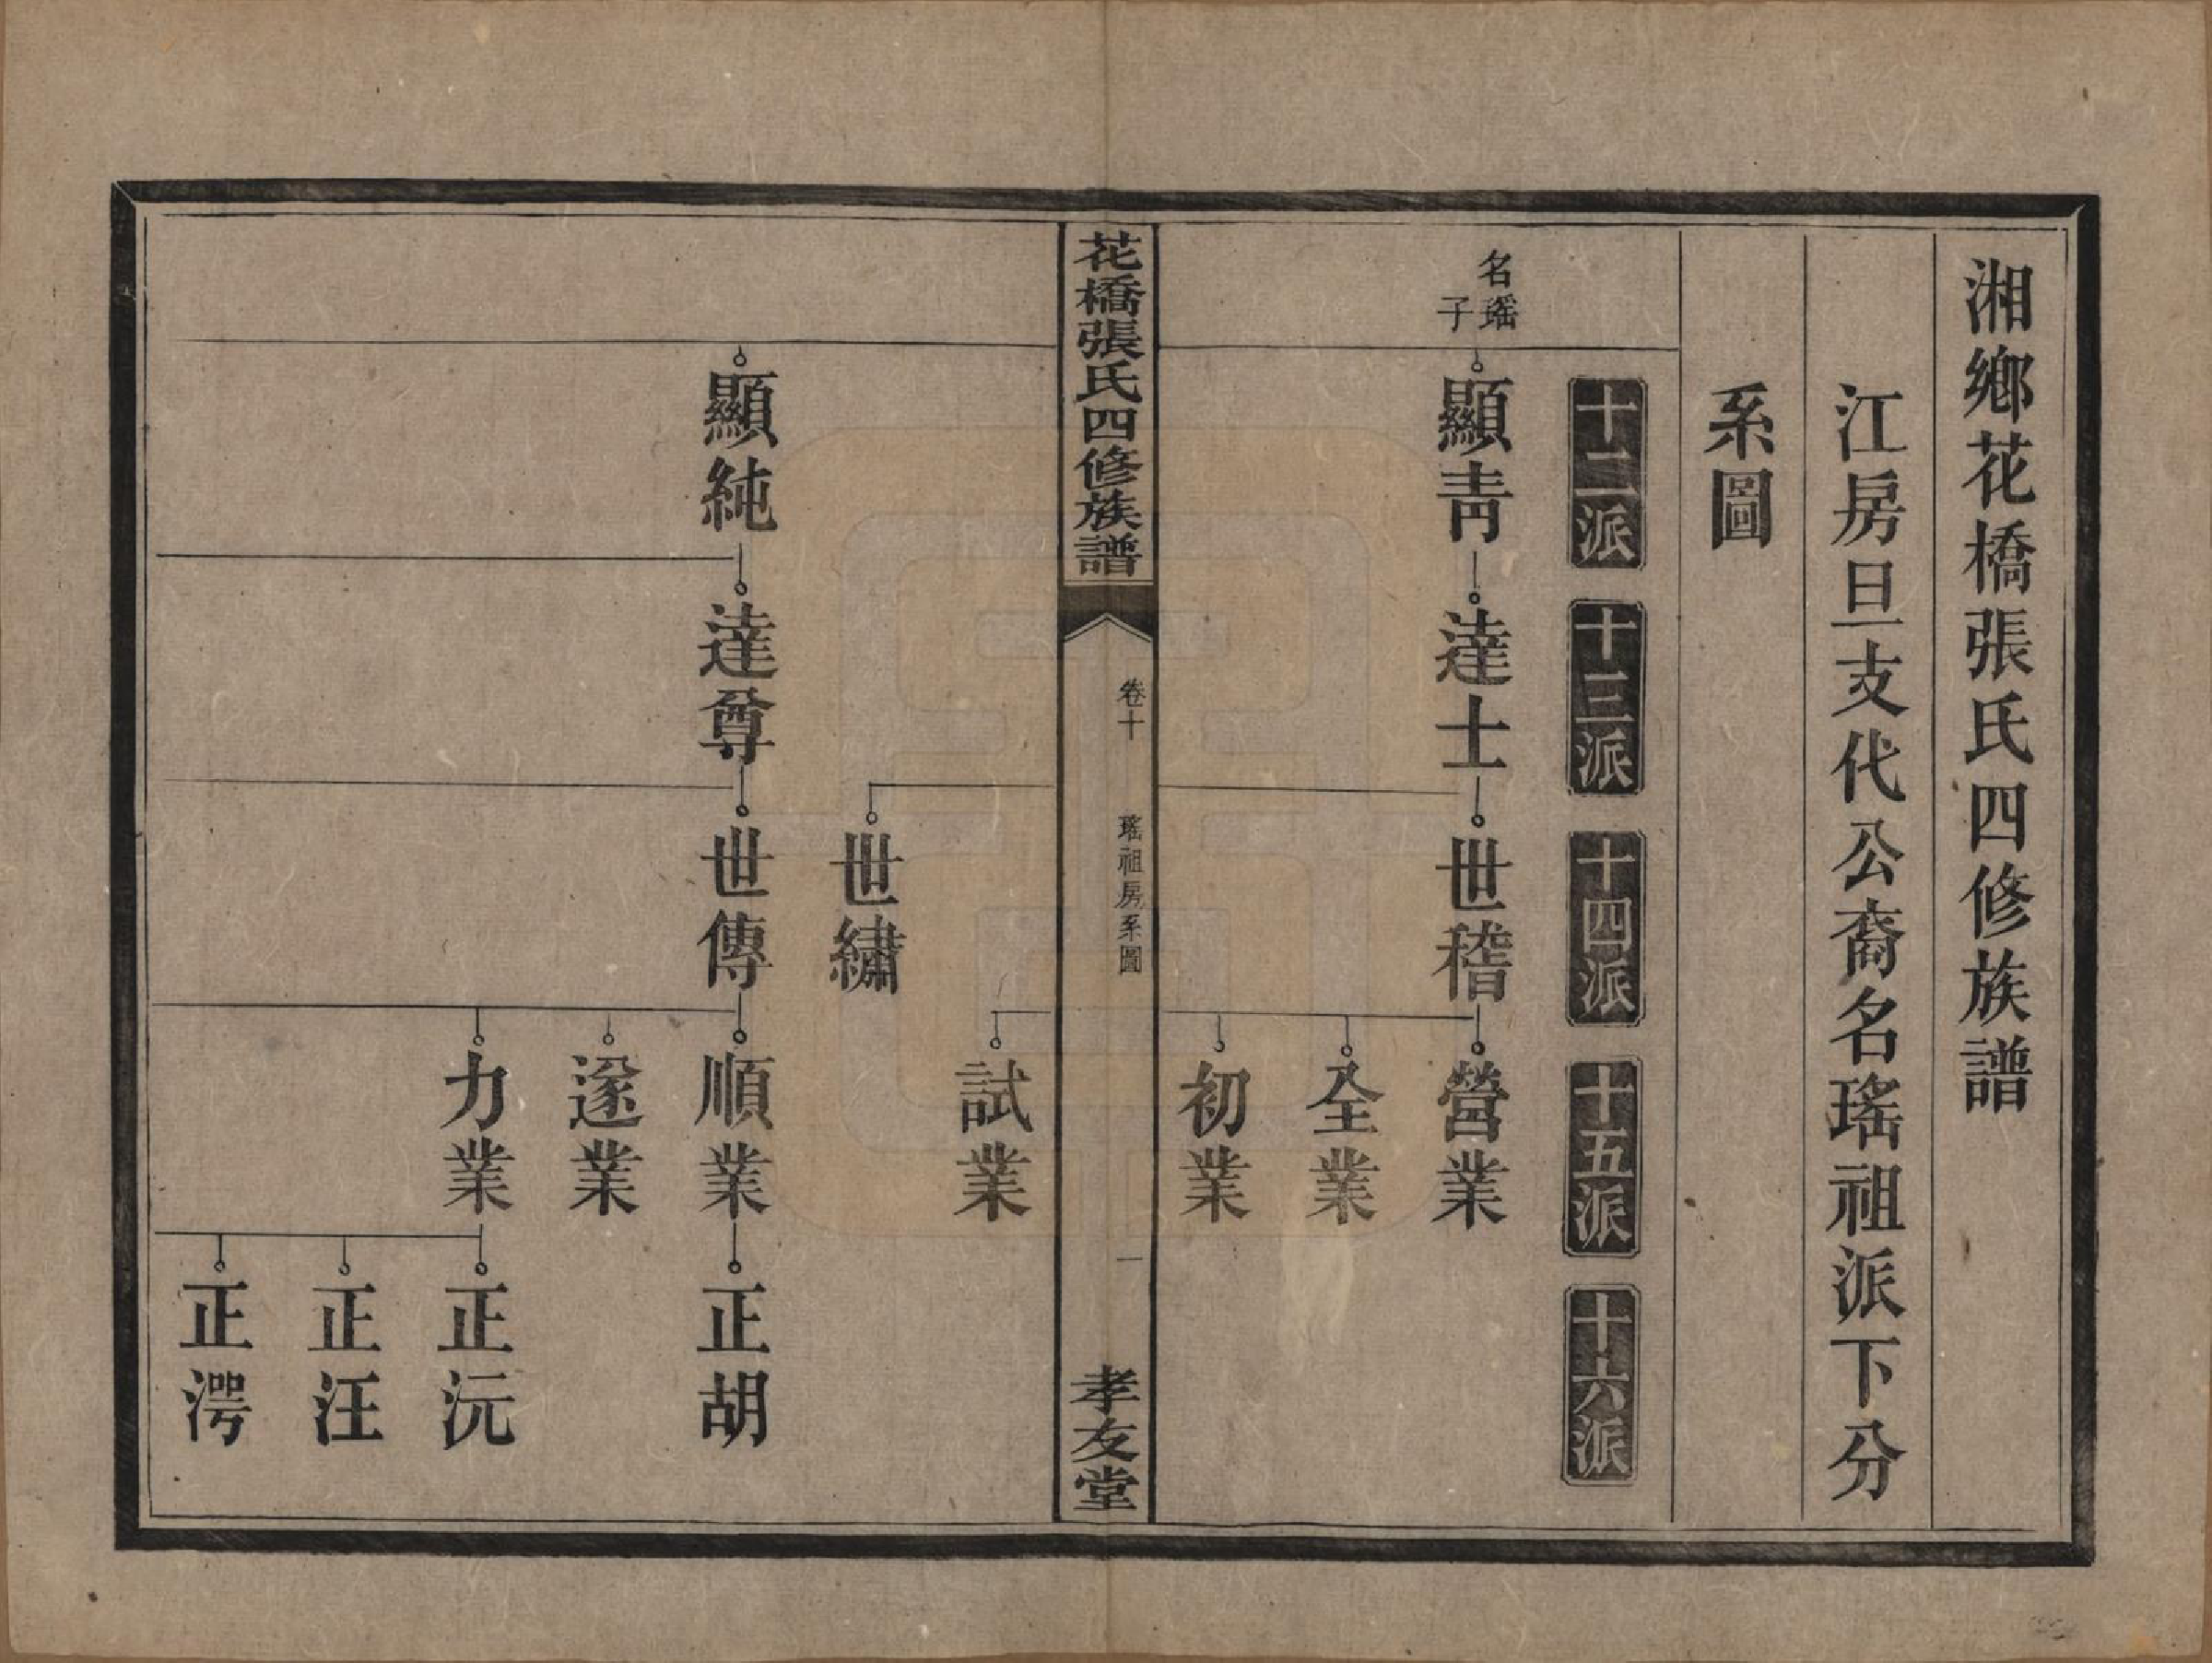 湘鄉花橋張氏四修族譜
江房旦一支代公裔名瑤祖派下分
系圖
十二派
十三派
十四派
十五派
十六派
名瑤
子
顯靑
達士
世稽
營業
全業
初業
花橋張氏四修族譜
卷十
瑤祖房系圖
一
孝友堂
試業
世繡
顯純
達尊
世傳
順業
正胡
遂業
力業
正沅
正汪
正澚